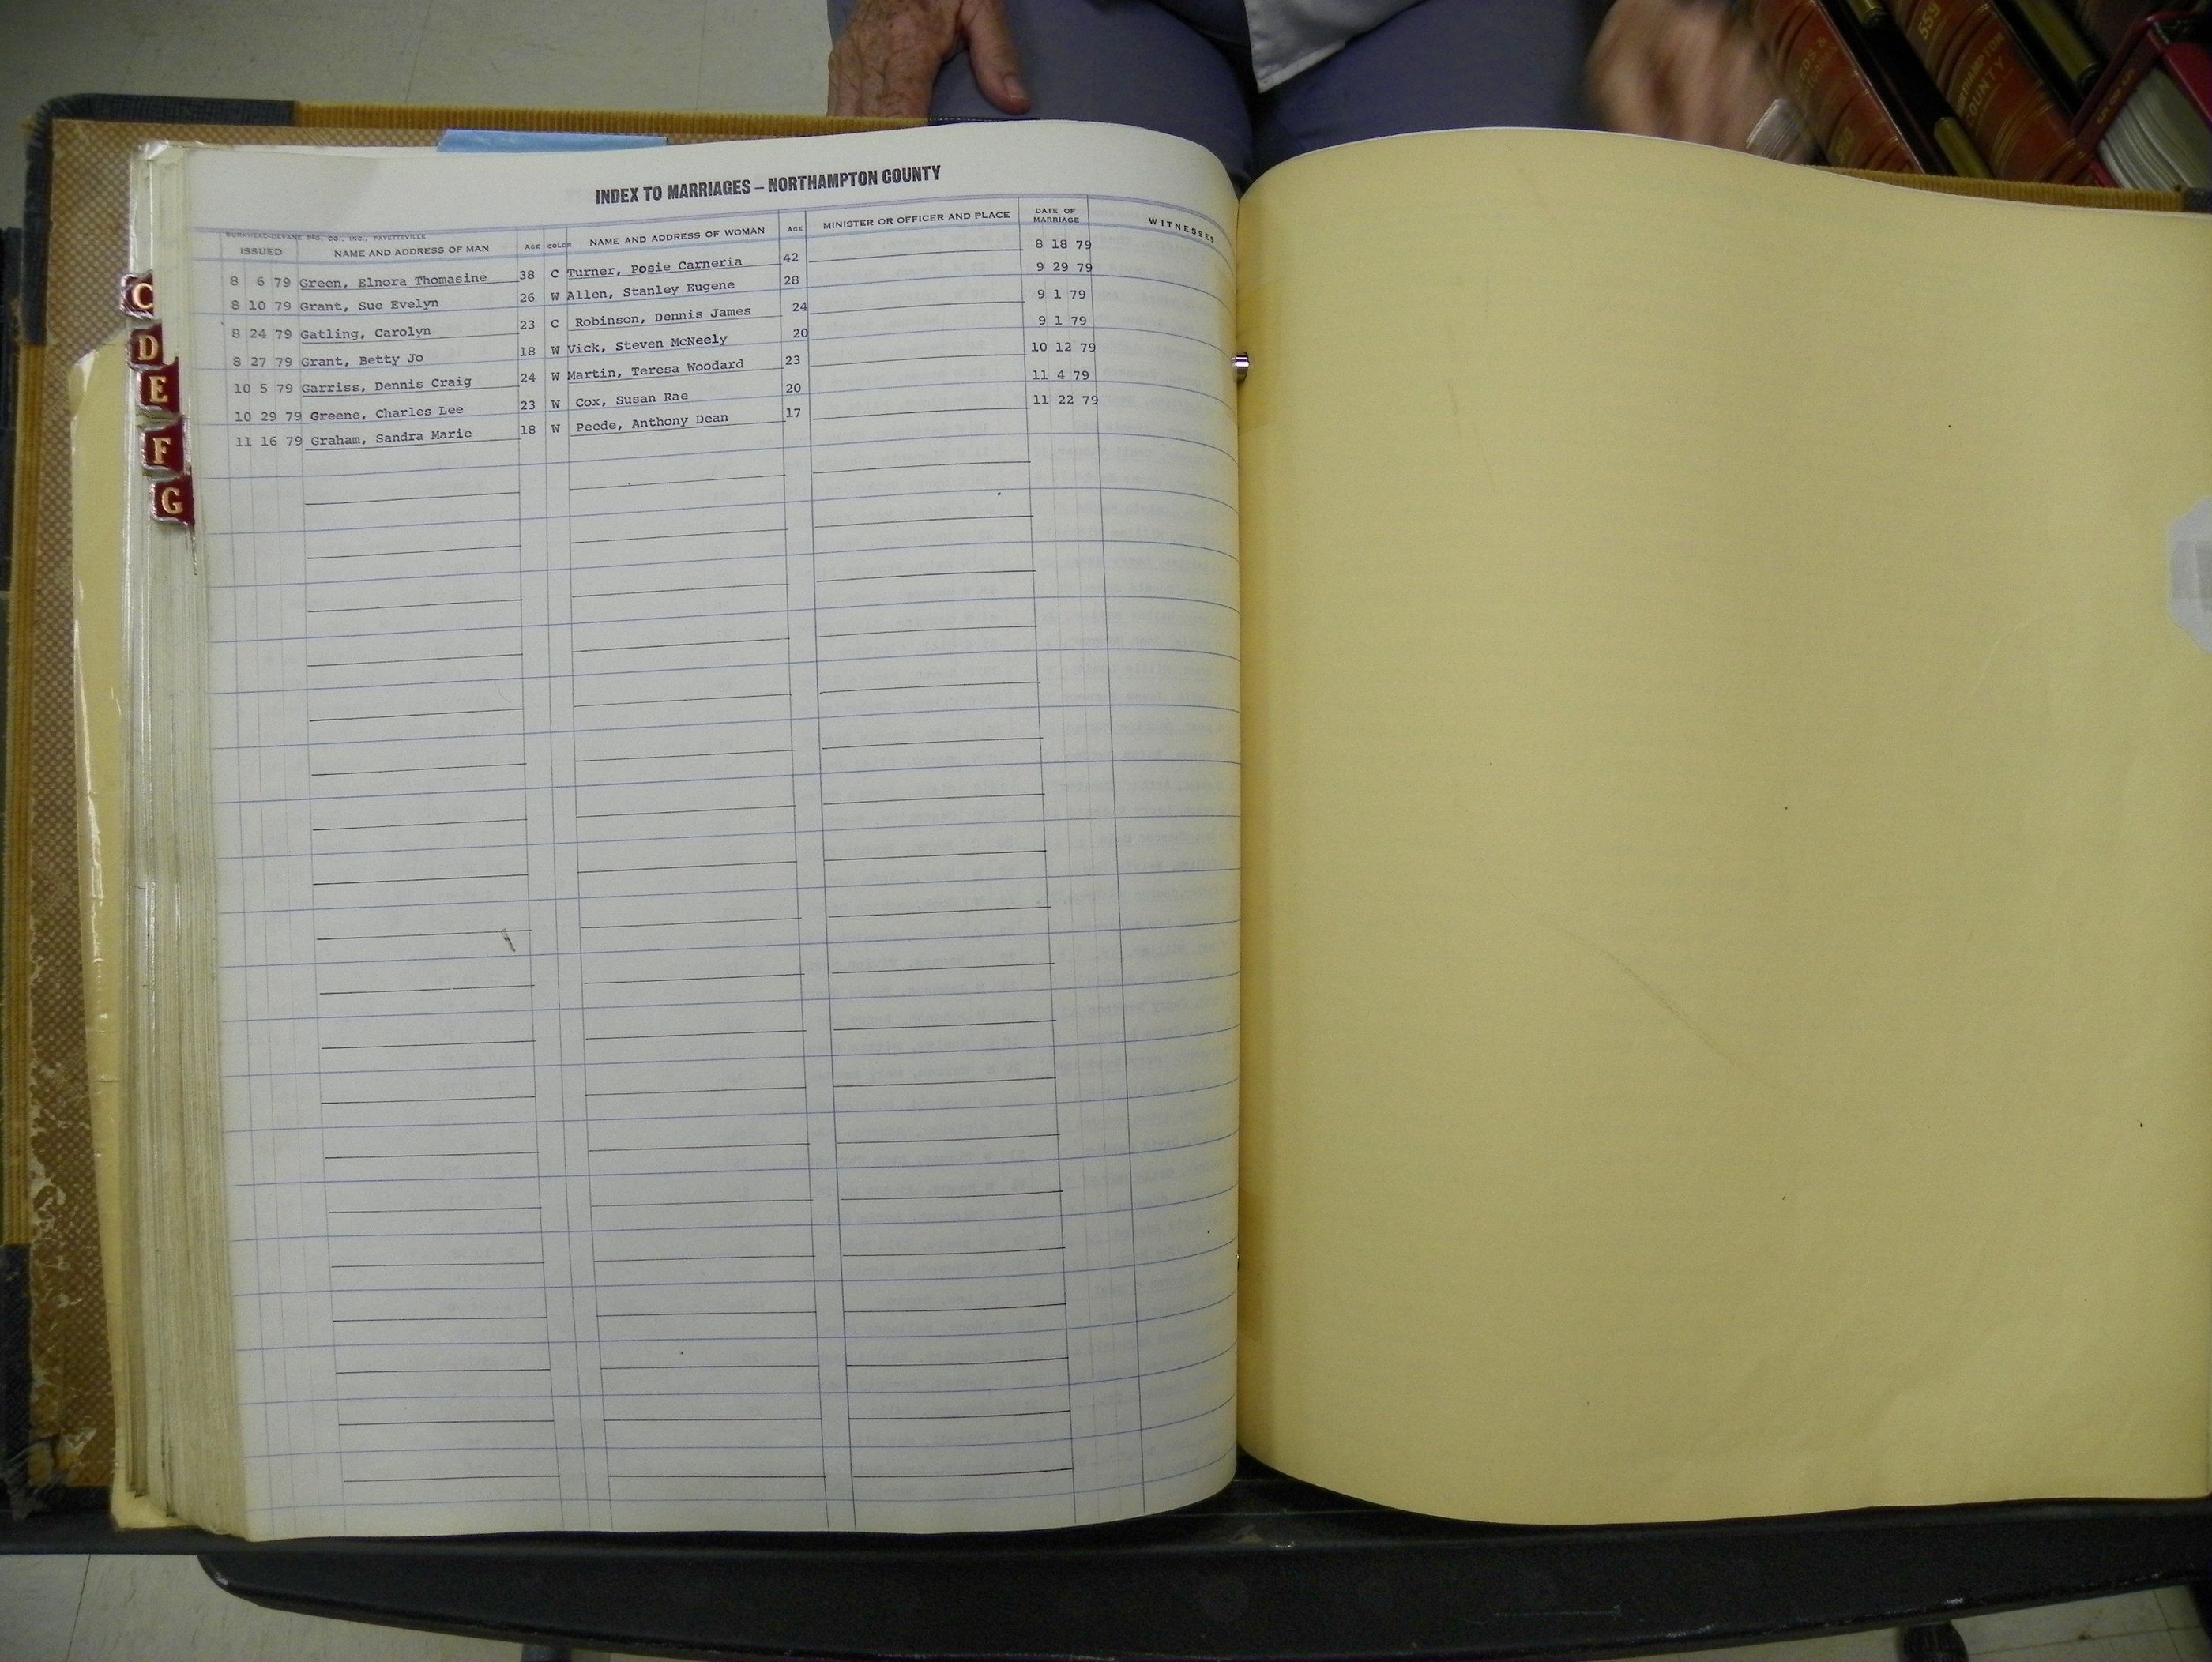 INDEX TO MARRIAGES – NORTHAMPTON COUNTY
BURKHEAD-DEVANE PTG. CO., INC., FAYETTEVILLE
ISSUED NAME AND ADDRESS OF MAN AGE COLOR NAME AND ADDRESS OF WOMAN AGE MINISTER OR OFFICER AND PLACE DATE OF MARRIAGE WITNESSES
8 6 79 Green, Elnora Thomasine 38 C Turner, Posie Carneria 42 8 18 79
8 10 79 Grant, Sue Evelyn 26 W Allen, Stanley Eugene 28 9 29 79
8 24 79 Gatling, Carolyn 23 C Robinson, Dennis James 24 9 1 79
8 27 79 Grant, Betty Jo 18 W Vick, Steven McNeely 20 9 1 79
10 5 79 Garriss, Dennis Craig 24 W Martin, Teresa Woodard 23 10 12 79
10 29 79 Greene, Charles Lee 23 W Cox, Susan Rae 20 11 4 79
11 16 79 Graham, Sandra Marie 18 W Peede, Anthony Dean 17 11 22 79
C
D
E
F
G
559
COUNTY